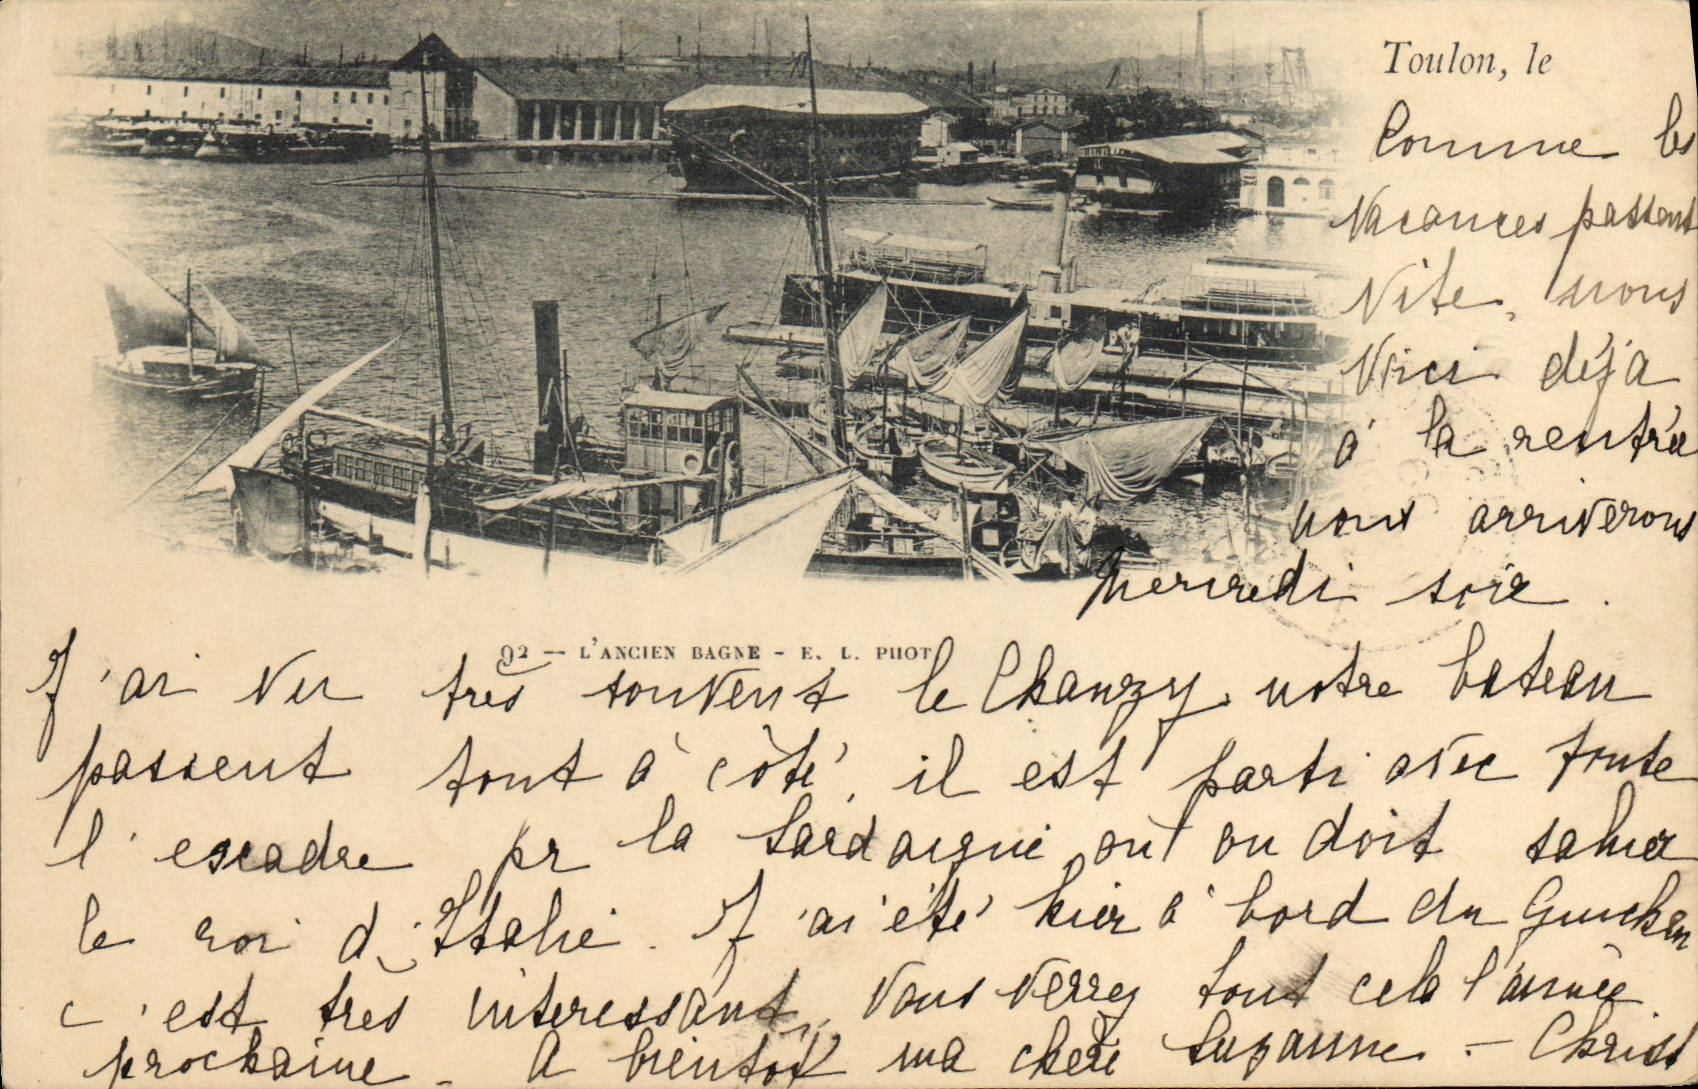 Toulon, le
Comme les
vacances passent
vite, nous
voici déjà
à la rentrée
nous arriverons
Mercredi soir.
92 — L'ANCIEN BAGNE - E. L. PHOT
J'ai vu très souvent le Chanzy, notre bateau
passent tout à côté, il est parti avec toute
l'escadre pr la Sardaigne où on doit saluer
le roi d'Italie. J'ai été hier à bord du Guichen
c'est très intéressant, vous verrez tout cela l'année
prochaine. A bientôt ma chère Suzanne. — Christ